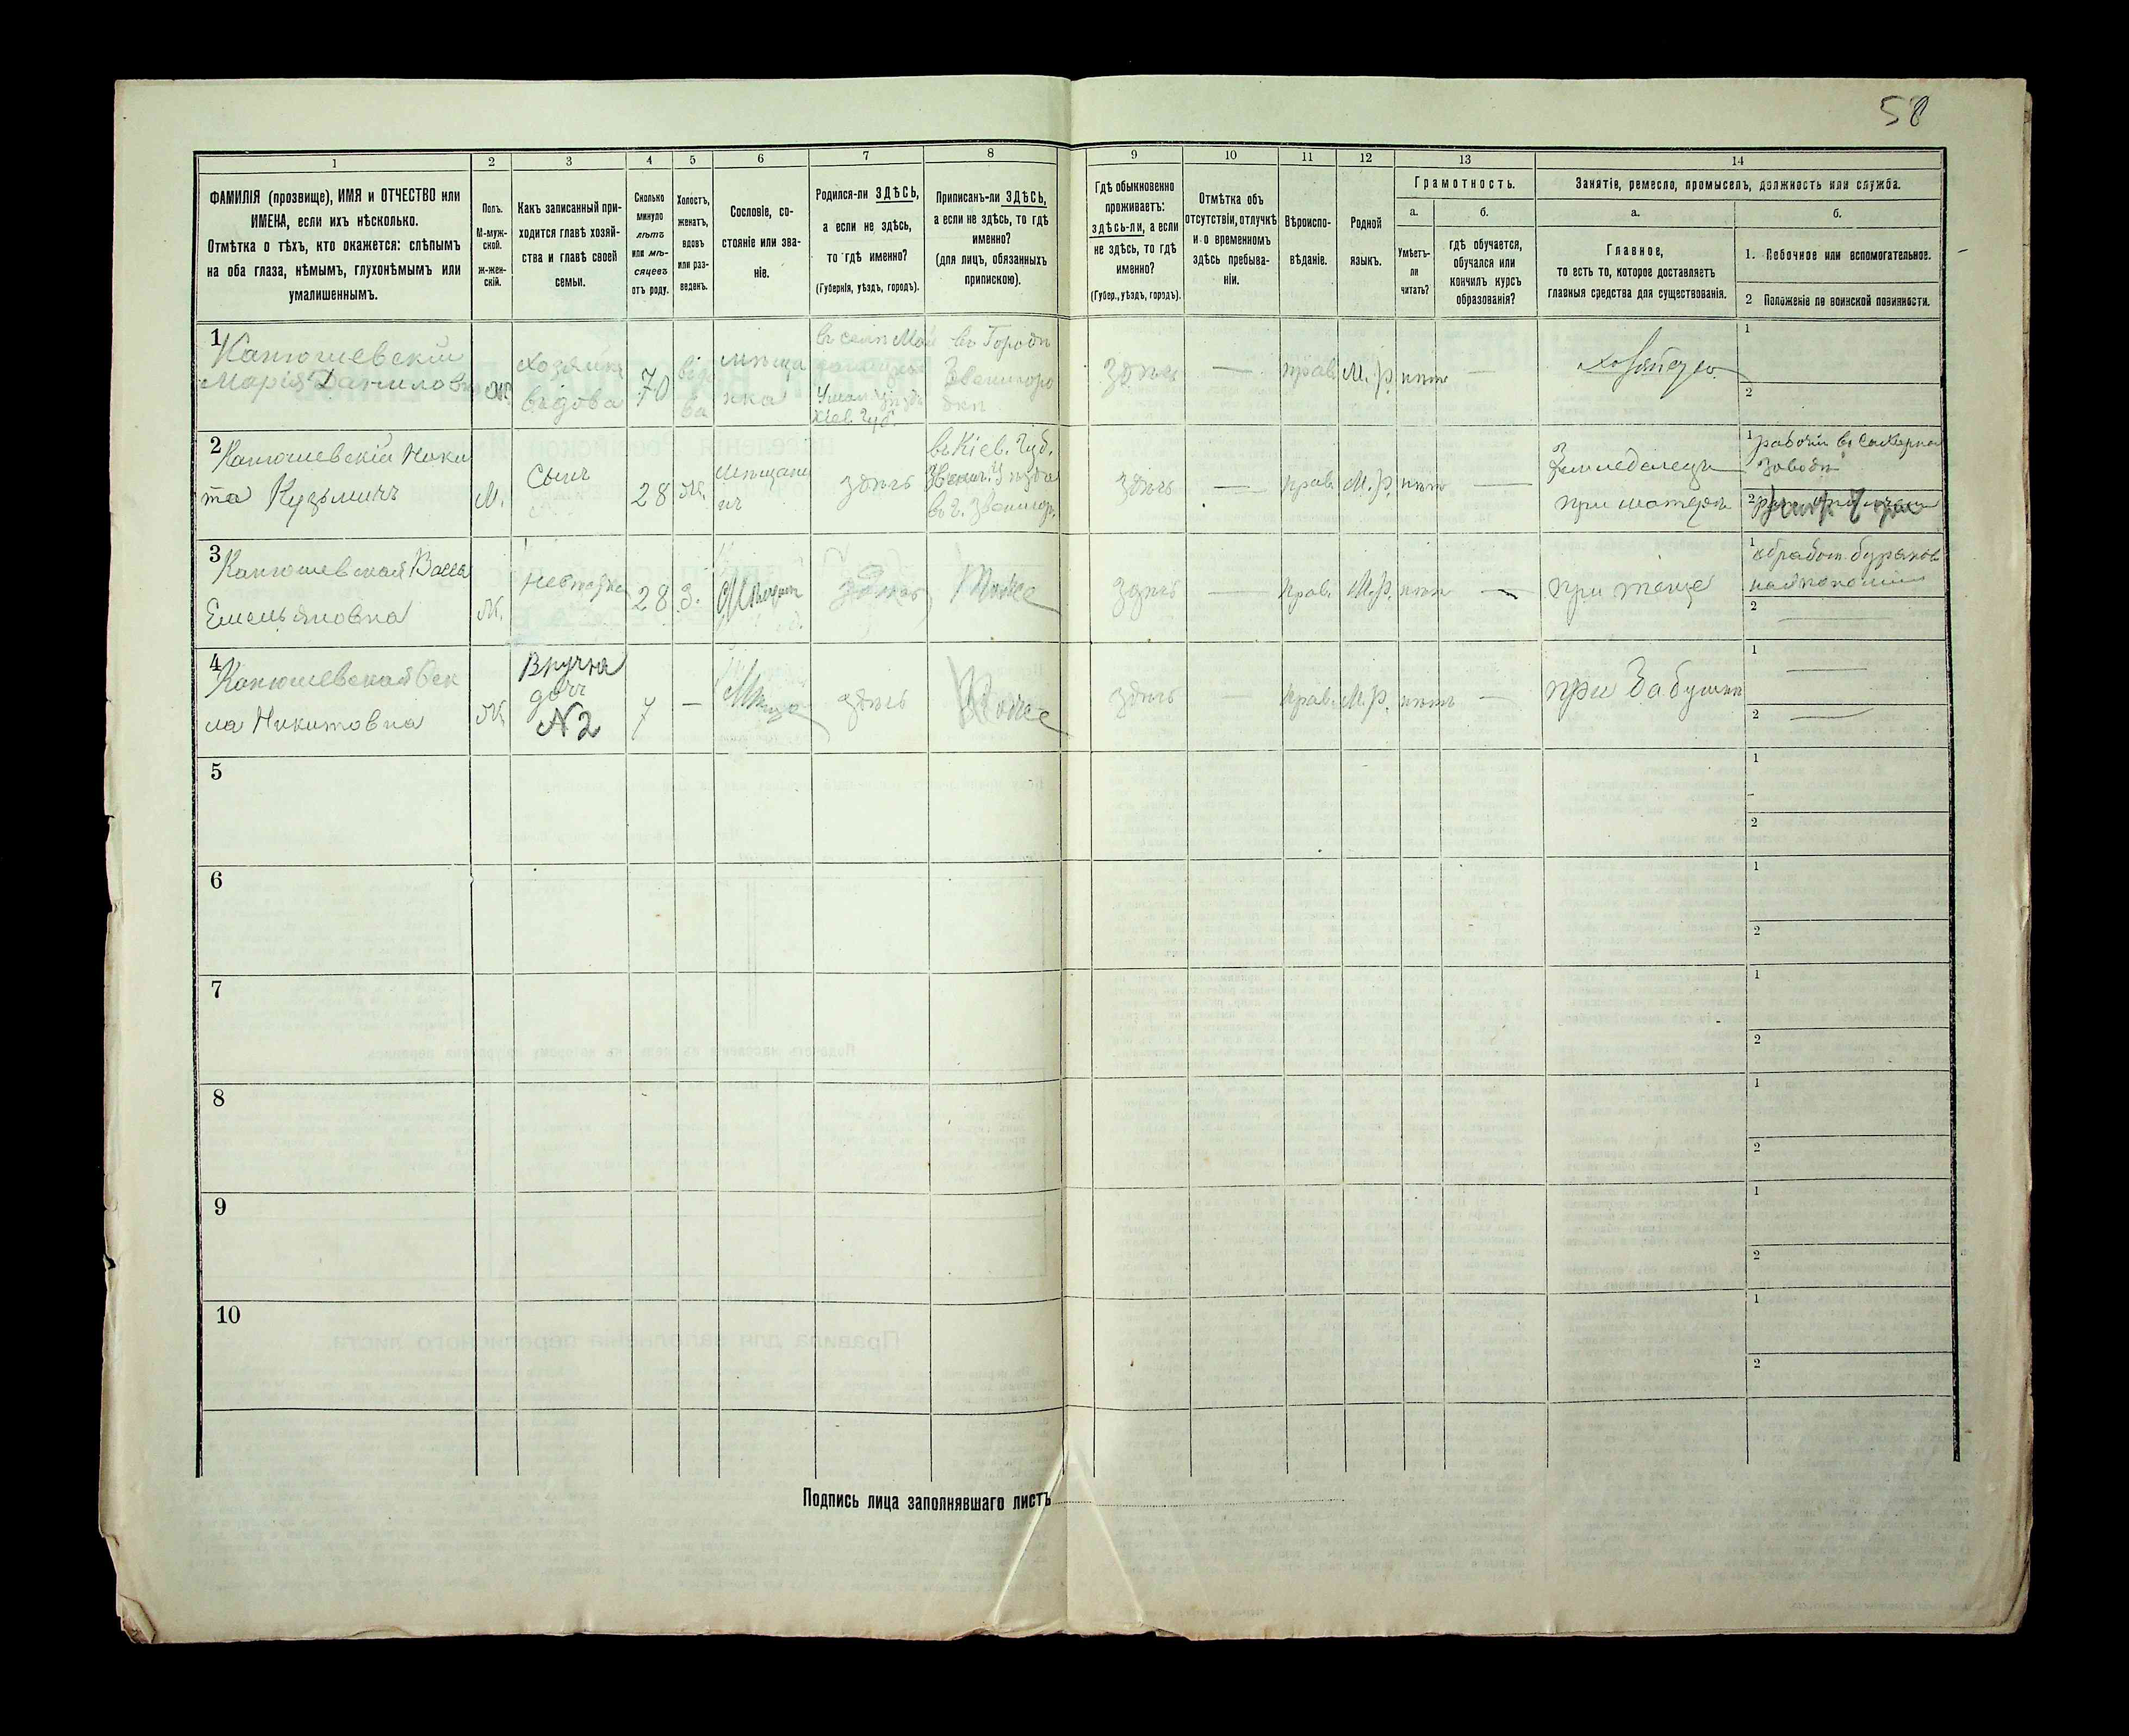 58
1 2 3 4 5 6 7 8 9 10 11 12 13 14
ФАМИЛІЯ (прозвище), ИМЯ и ОТЧЕСТВО или
ИМЕНА, если ихъ нѣсколько.
Отмѣтка о тѣхъ, кто окажется: слѣпымъ
на оба глаза, нѣмымъ, глухонѣмымъ или
умалишеннымъ.
Полъ.
М-муж-
ской.
ж-жен-
скій.
Какъ записанный при-
ходится главѣ хозяй-
ства и главѣ своей
семьи.
Сколько
минуло
лѣтъ
или мѣ-
сяцевъ
отъ роду.
Холостъ,
женатъ,
вдовъ
или раз-
веденъ.
Сословіе, со-
стояніе или зва-
ніе.
Родился-ли ЗДѢСЬ,
а если не здѣсь,
то гдѣ именно?
(Губернія, уѣздъ, городъ).
Приписанъ-ли ЗДѢСЬ,
а если не здѣсь, то гдѣ
именно?
(для лицъ, обязанныхъ
припискою).
Гдѣ обыкновенно
проживаетъ:
здѣсь-ли, а если
не здѣсь, то гдѣ
именно?
(Губер., уѣздъ, городъ).
Отмѣтка объ
отсутствіи, отлучкѣ
и о временномъ
здѣсь пребыва-
ніи.
Вѣроиспо-
вѣданіе.
Родной
языкъ.
Грамотность.
а.
Умѣетъ-
ли
читать?
б.
гдѣ обучается,
обучался или
кончилъ курсъ
образованія?
Занятіе, ремесло, промыселъ, должность или служба.
а.
Главное,
то есть то, которое доставляетъ
главныя средства для существованія.
б.
1. Побочное или вспомогательное.
2 Положеніе по воинской повинности.
1
Канюшевскій
Марія Даниловна
Ж.
хозяйка
вѣдова
70
вѣдо
ва
мѣща
нка
въ селѣ
Уман. уѣзда
Кіев. Губ.
въ Городѣ
Звениторо
дкѣ
здѣсь — прав. М.р. нѣтъ —
1
2
2
Канюшевскій Ники
та Кузьмичъ
М.
Сынъ
28
Ж.
мѣщани
нъ
здѣсь
въ Кіев. Губ.
Звениг. Уѣзда
въ г. Звенигор.
здѣсь — прав. М.р. нѣтъ —
Земледелецъ
при матери
1 рабочій въ Сахарно
Заводѣ
2
3
Канюшевская Васса
Емельяновна
Ж.
Невѣстка
28
З.
здѣсь
Тоже
здѣсь — прав. М.р. нѣтъ —
1
2 —
4
Канюшевская Фек
ла Никитовна
Ж.
Внучка
дочь
N 2
7
—
здѣсь
Тоже
здѣсь — прав. М.р. нѣтъ —
при бабушкѣ
1 —
2 —
5
1
2
6
1
2
7
1
2
8
1
2
9
1
2
10
1
2
Подпись лица заполнявшаго листъ